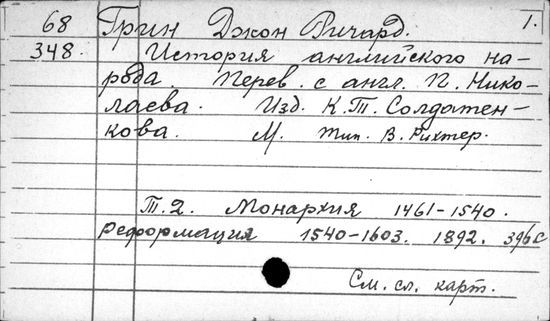 68 Грин Джон Ричард. 1.
348. История английского на-
рода. Перев. с англ. П. Нико-
лаева. Изд. К.Т. Солдатен-
кова. М. тип. В. Рихтер.
Т.2. Монархия 1461-1540.
Реформация 1540-1603. 1892. 396 с
См. сл. карт.